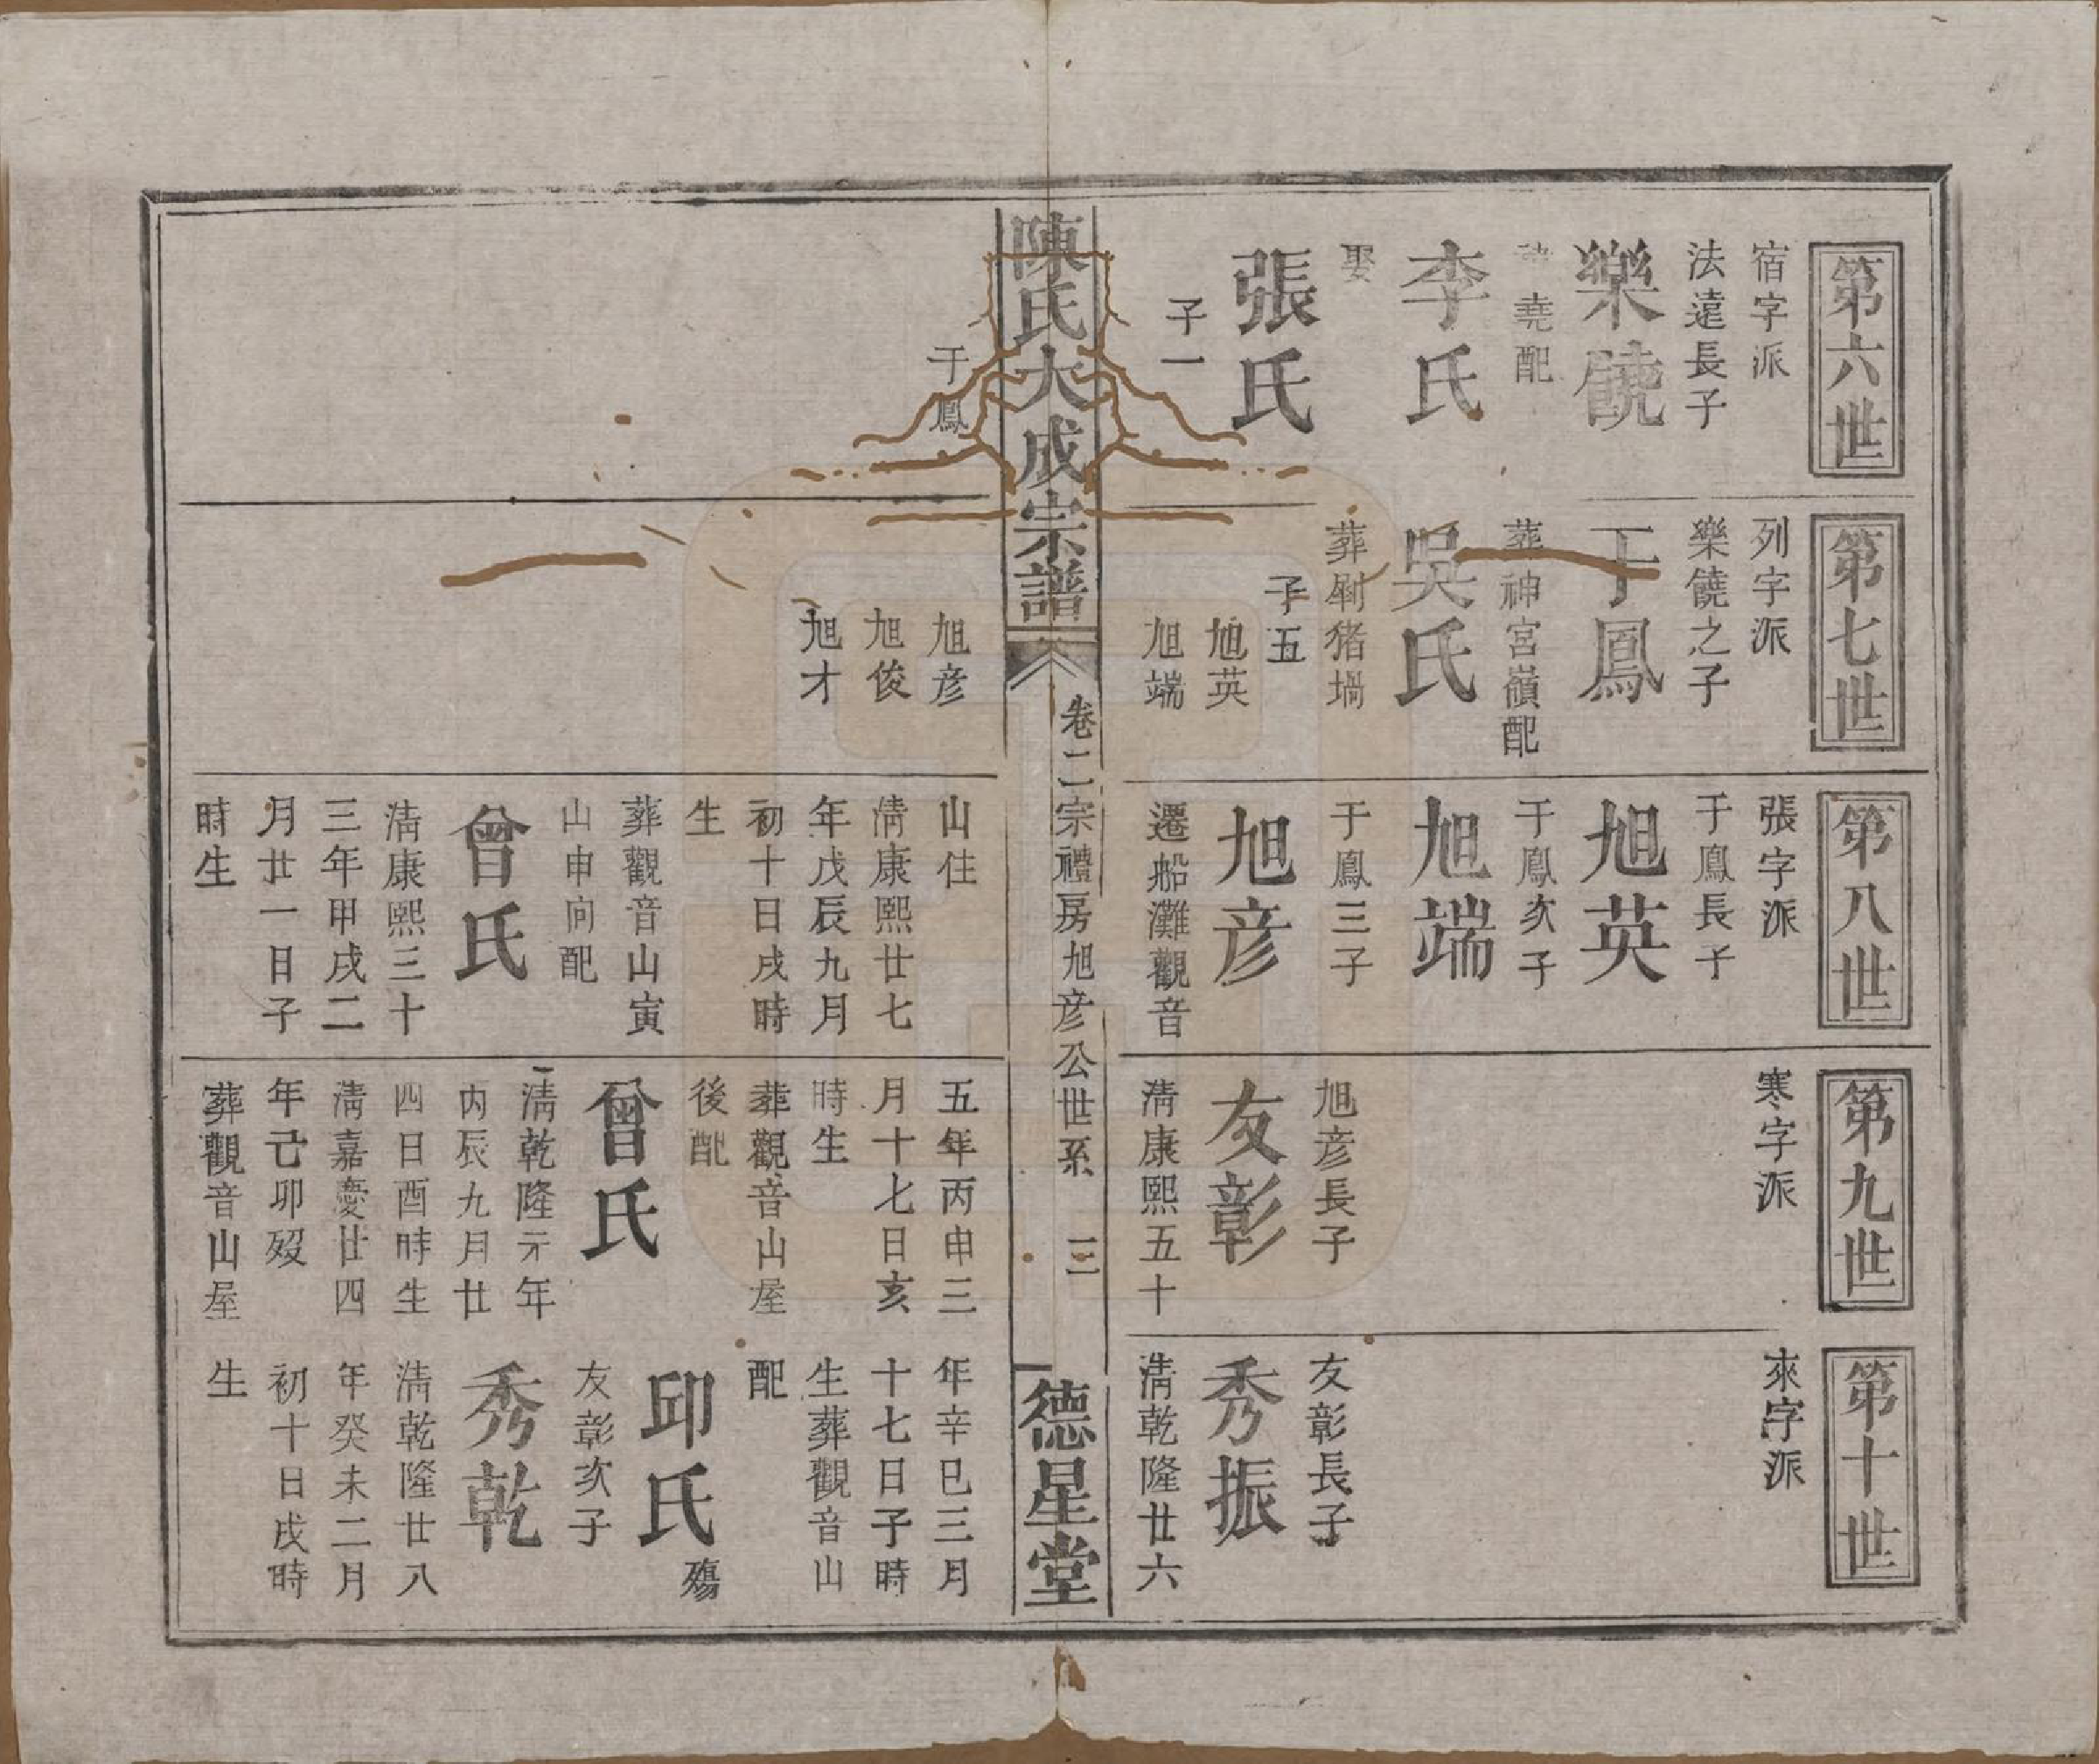 第六世
宿字派
法遠長子
樂饒
堯配
李氏
娶
張氏
子一
于鳳
第七世
列字派
樂饒之子
于鳳
葬神宮嶺配
吳氏
葬剮猪塥
子五
旭英
旭端
旭彦
旭俊
旭才
第八世
張字派
于鳳長子
旭英
于鳳次子
旭端
于鳳三子
旭彦
遷船灘觀音
山住
清康熙廿七
年戊辰九月
初十日戌時
生
葬觀音山寅
山申向配
曾氏
清康熙三十
三年甲戌二
月廿一日子
時生
第九世
寒字派
旭彦長子
友彰
清康熙五十
五年丙申三
月十七日亥
時生
葬觀音山屋
後配
曾氏
清乾隆元年
丙辰九月廿
四日酉時生
清嘉慶廿四
年己卯歿
葬觀音山屋
第十世
來字派
友彰長子
秀振
清乾隆廿六
年辛巳三月
十七日子時
生葬觀音山
配
邱氏殤
友彰次子
秀乾
清乾隆廿八
年癸未二月
初十日戌時
生
陳氏大成宗譜
卷二宗禮房旭彦公世系 三
德星堂